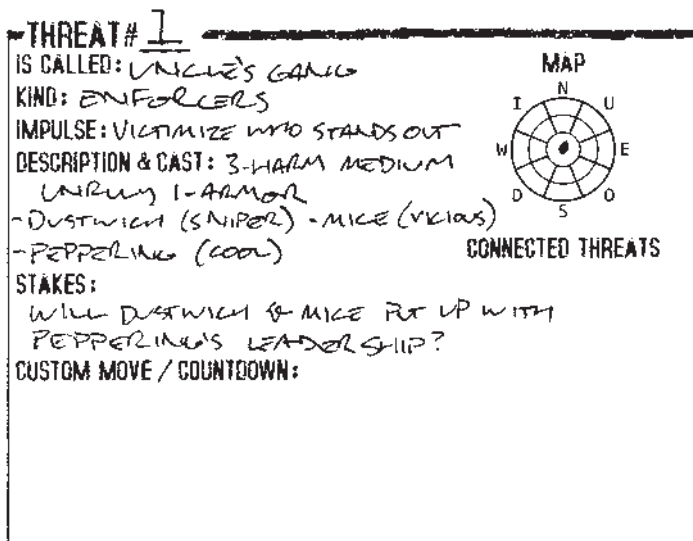 THREAT# 1
IS CALLED: UNCLE'S GANG
KIND: ENFORCERS
IMPULSE: VICTIMIZE WHO STANDS OUT
DESCRIPTION & CAST: 3-HARM MEDIUM
UNRULY 1-ARMOR
-DUSTWICH (SNIPER) -MICE (VICIOUS)
-PEPPERING (COOL)
STAKES:
WILL DUSTWICH & MICE PUT UP WITH
PEPPERING'S LEADERSHIP?
CUSTOM MOVE / COUNTDOWN:
MAP
N
I U
W E
D O
S
CONNECTED THREATS